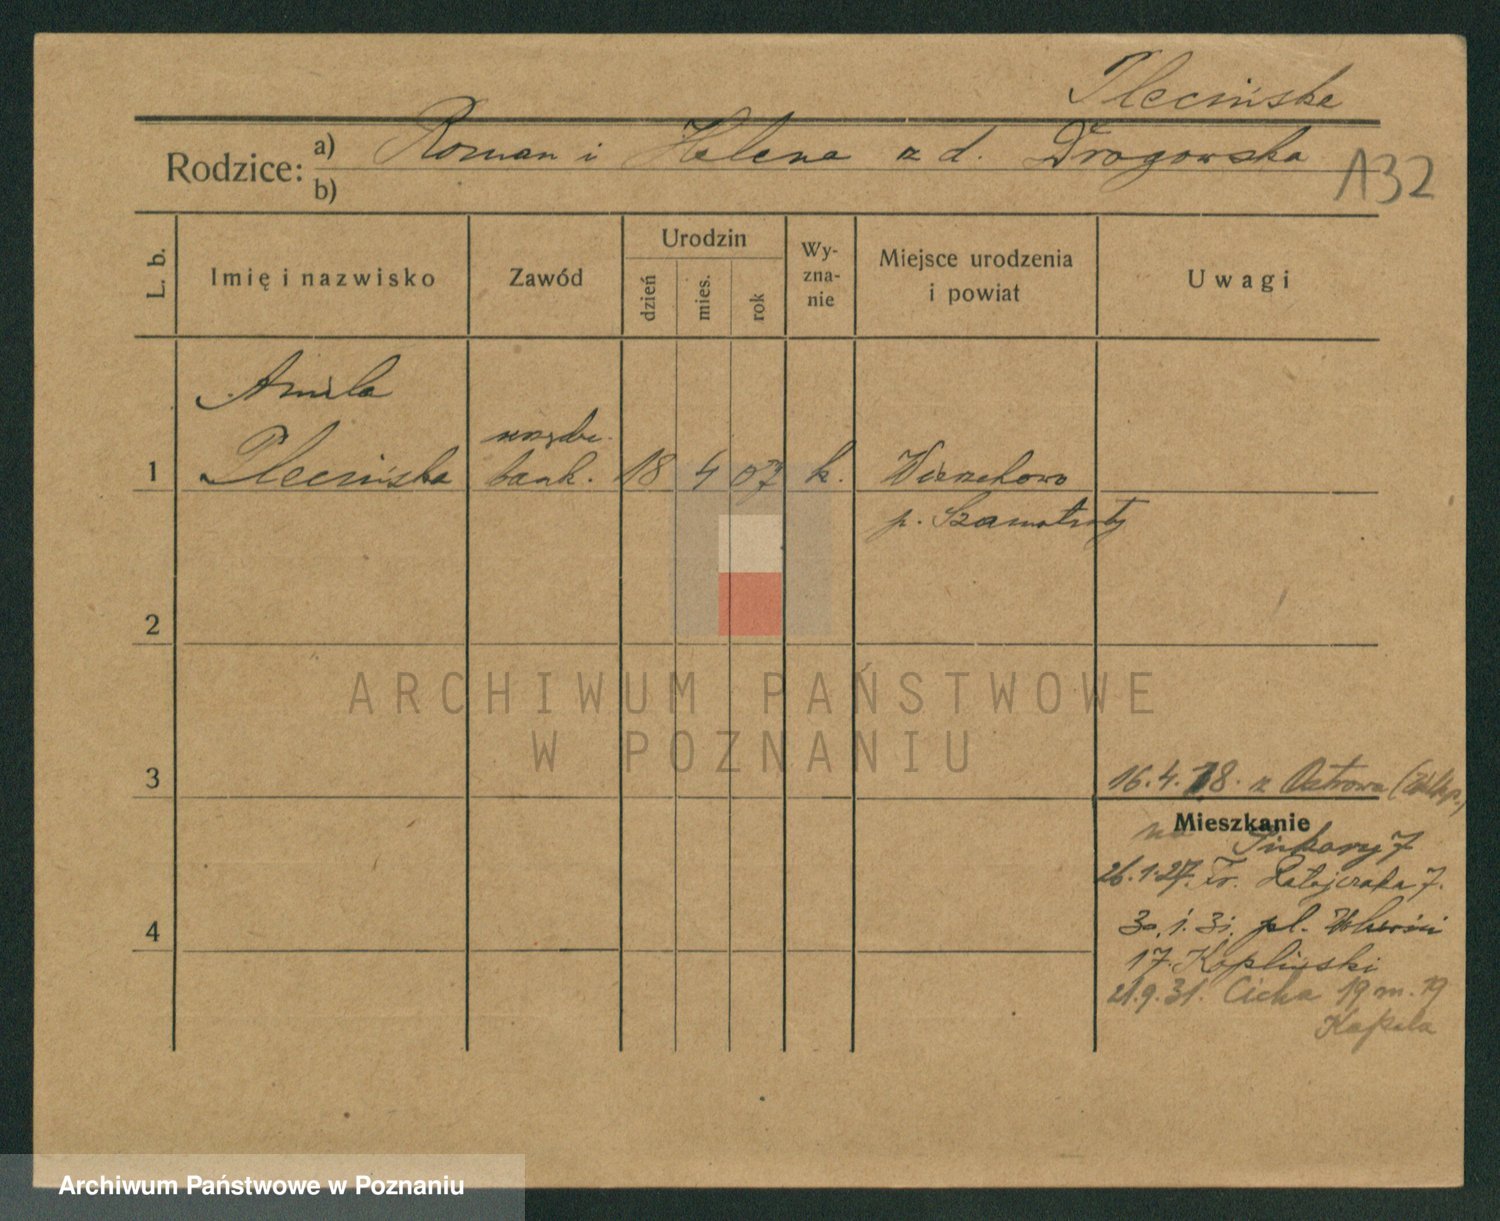 Plecińska
Rodzice: a) Roman i Helena z d. Drogowska
b)
A32
L. b.
Imię i nazwisko
Zawód
Urodzin
dzień
mies.
rok
Wy-
zna-
nie
Miejsce urodzenia
i powiat
Uwagi
Aniela
urzędn.
1 Plecińska bank. 18 4 07 k. Wierzchowo
p. Szamotuły
2
ARCHIWUM PAŃSTWOWE
W POZNANIU
3
16.4.18. z Ostrowa (Wlkp.)
Mieszkanie
na Piekary 7
26.1.27. Fr. Ratajczaka 7.
4
30.1.31. pl.
17. Kopliński
21.9.31. Cicha 19 m. 19
Kapela
Archiwum Państwowe w Poznaniu